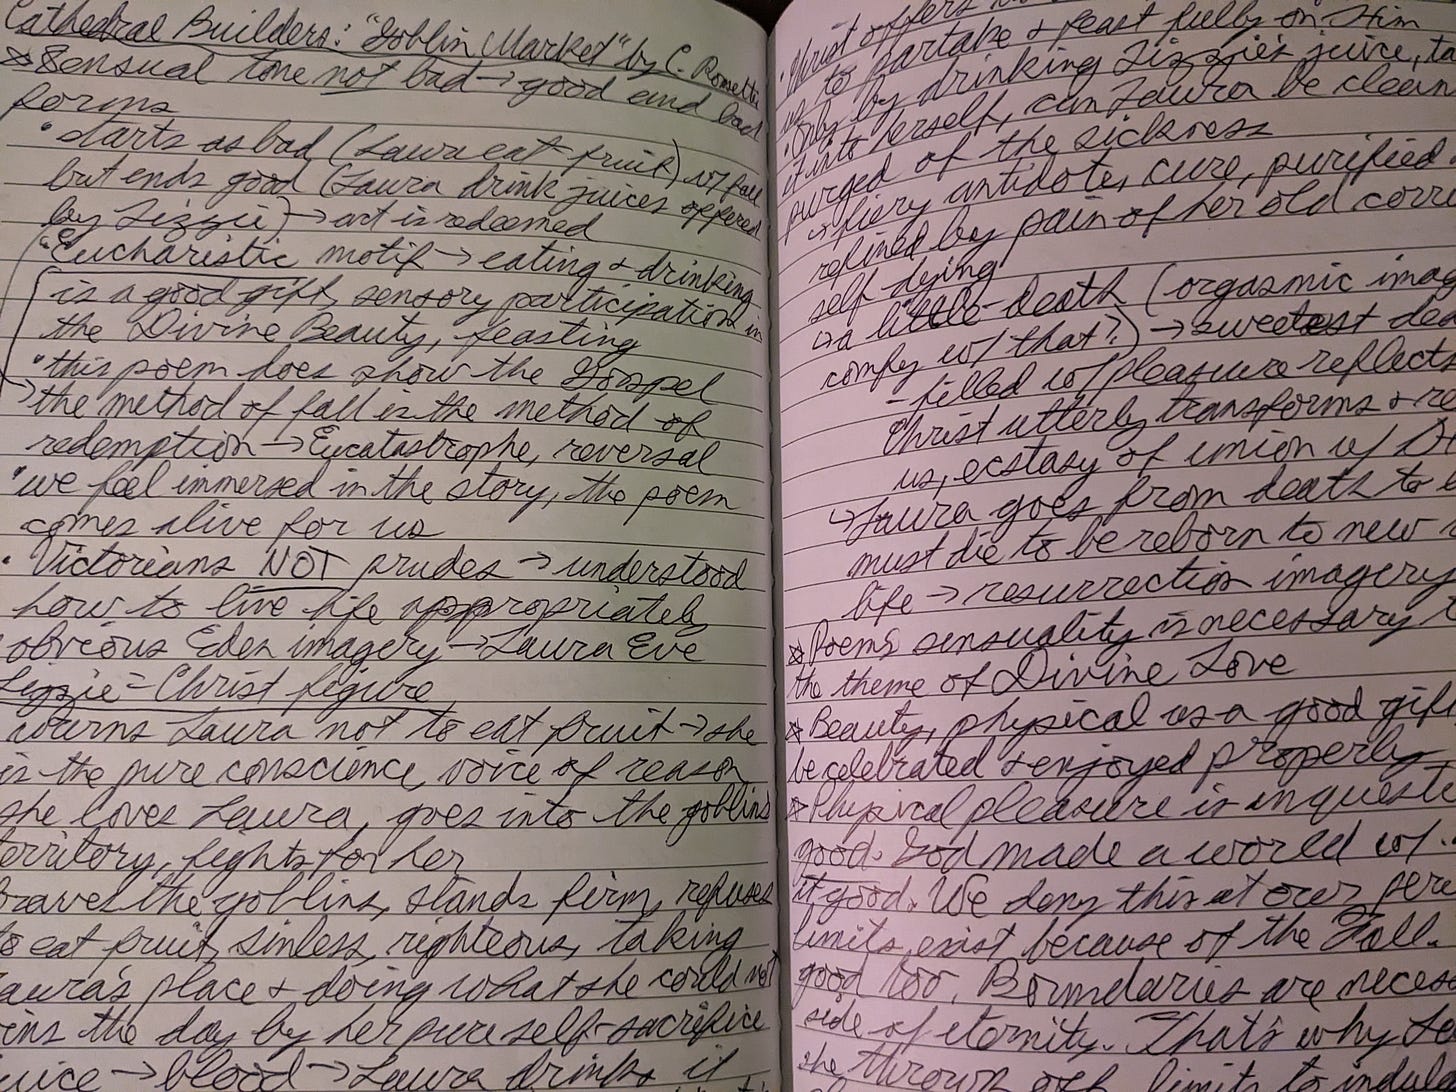 Cathedral Builders: "Goblin Market" by C. Rossetti
*Sensual tone not bad → good and bad
forms
• starts as bad (Laura eat fruit) w/ fall
but ends good (Laura drink juices offered
by Lizzie) → art is redeemed
• Eucharistic motif → eating & drinking
is a good gift, sensory participation in
the Divine Beauty, feasting
• this poem does show the Gospel
→ the method of fall is the method of
redemption → Eucatastrophe, reversal
• we feel immersed in the story, the poem
comes alive for us
• Victorians NOT prudes → understood
how to live life appropriately
obvious Eden imagery → Laura Eve
Lizzie = Christ figure
warns Laura not to eat fruit → she
is the pure conscience, voice of reason
she loves Laura, goes into the goblins
territory, fights for her
braves the goblins, stands firm, refuses
to eat fruit, sinless, righteous, taking
Laura's place & doing what she could not
wins the day by her pure self-sacrifice
juice → blood → Laura drinks it
• Christ offers
to partake & feast fully on Him
• Only by drinking Lizzie's juice, ta
it into herself, can Laura be clean
purged of the sickness
→ fiery antidote, cure, purified
refined by pain of her old corru
self dying
↳ a little death (orgasmic imag
comfy w/ that?) → sweetest dea
- filled w/ pleasure reflects
Christ utterly transforms & re
us, ecstasy of union w/ Di
↳ Laura goes from death to
must die to be reborn to new
life → resurrection imagery
*Poem's sensuality is necessary
the theme of Divine Love
*Beauty, physical is a good gift
be celebrated & enjoyed properly
*Physical pleasure is inquesti
good. God made a world w/
it good. We deny this at our peril
limits exist because of the Fall.
good too. Boundaries are necess
side of eternity. That's why
she throws off limits to indul